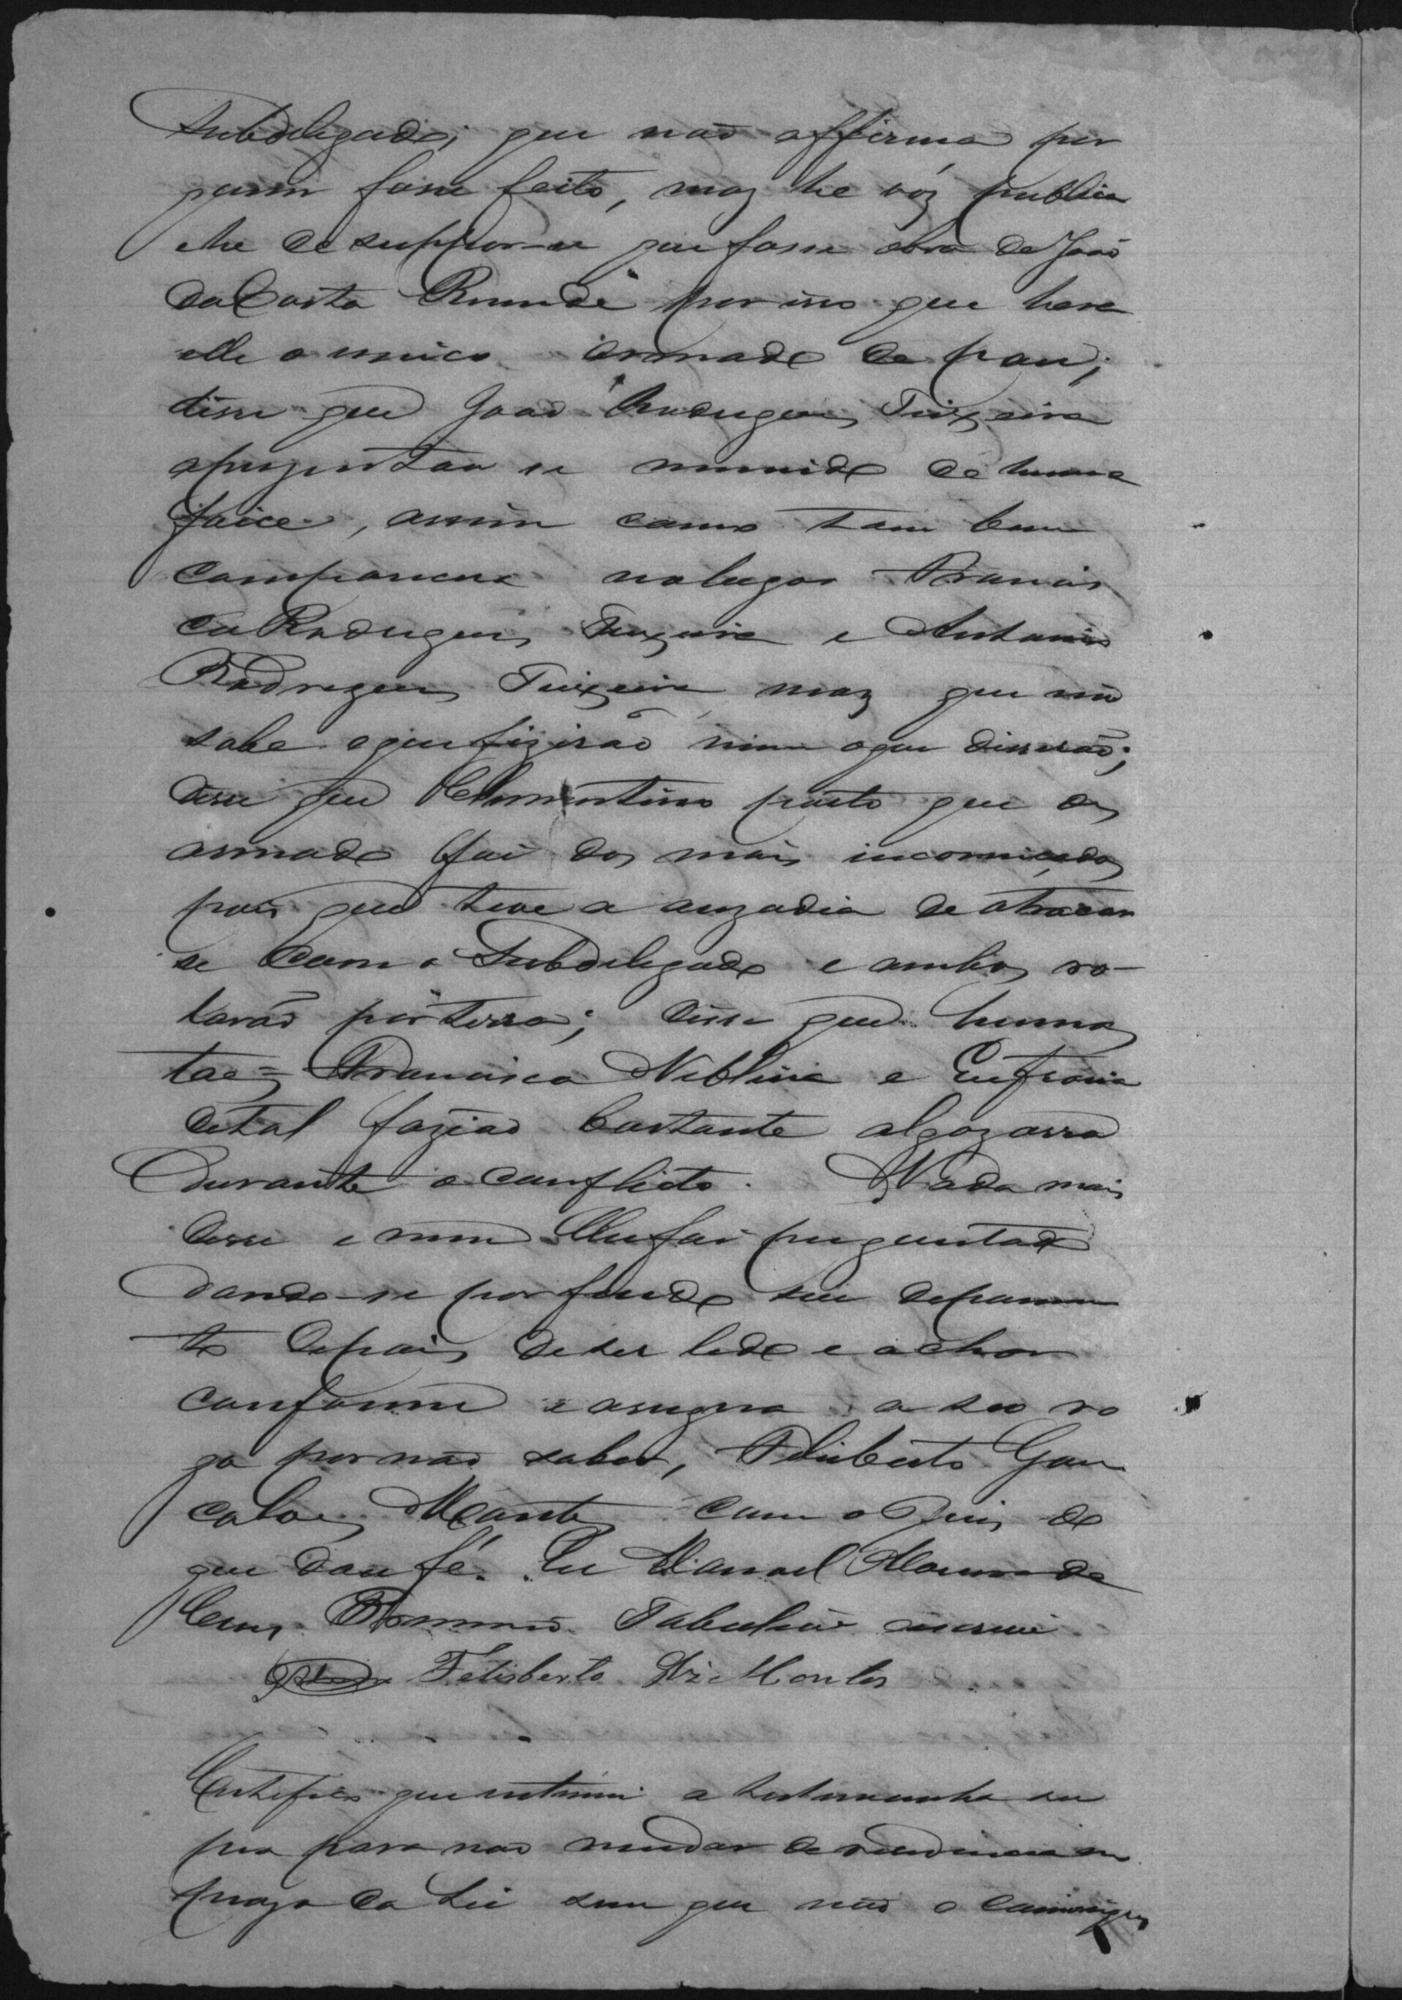 Subdelegado; que não affirma por
quem fosse feito, maz he vóz publica
e he de suppor-se que fosse obra de João
da Costa por isso que hera
elle o unico armado de pau;
disse que João Rodrigues Teixeira
aprezentou se munido de huma
foice, assim como tam bem
compareceu no lugar Francis
co Rodrigues Teixeira e Antonio
Rodrigues Teixeira maz que não
sabe o que fizerão nem o que disserão;
disse que Clementino posto que des
armado foi dos mais
pois que teve a auzadia de atracar
se com o Subdelegado e ambos ro-
larão por terra; disse que humas
taes Francisca Neblina e Eufrasia
de tal fazião bastante algazarra
durante o conflicto. Nada mais
disse e nem lhe foi perguntado
dando-se por findo seu depoimen
to depois de ser lido e achar
conforme e assigna a seu ro
go por não saber, Filisberto Gon
calves Montes com o Juis do
que dou fé. Eu Manoel
Tabelião escrevi
Felisberto Glz Montes
Certifico que intimei a testemunha su
pra para não mudar de residencia no
prazo da Lei sem que não o